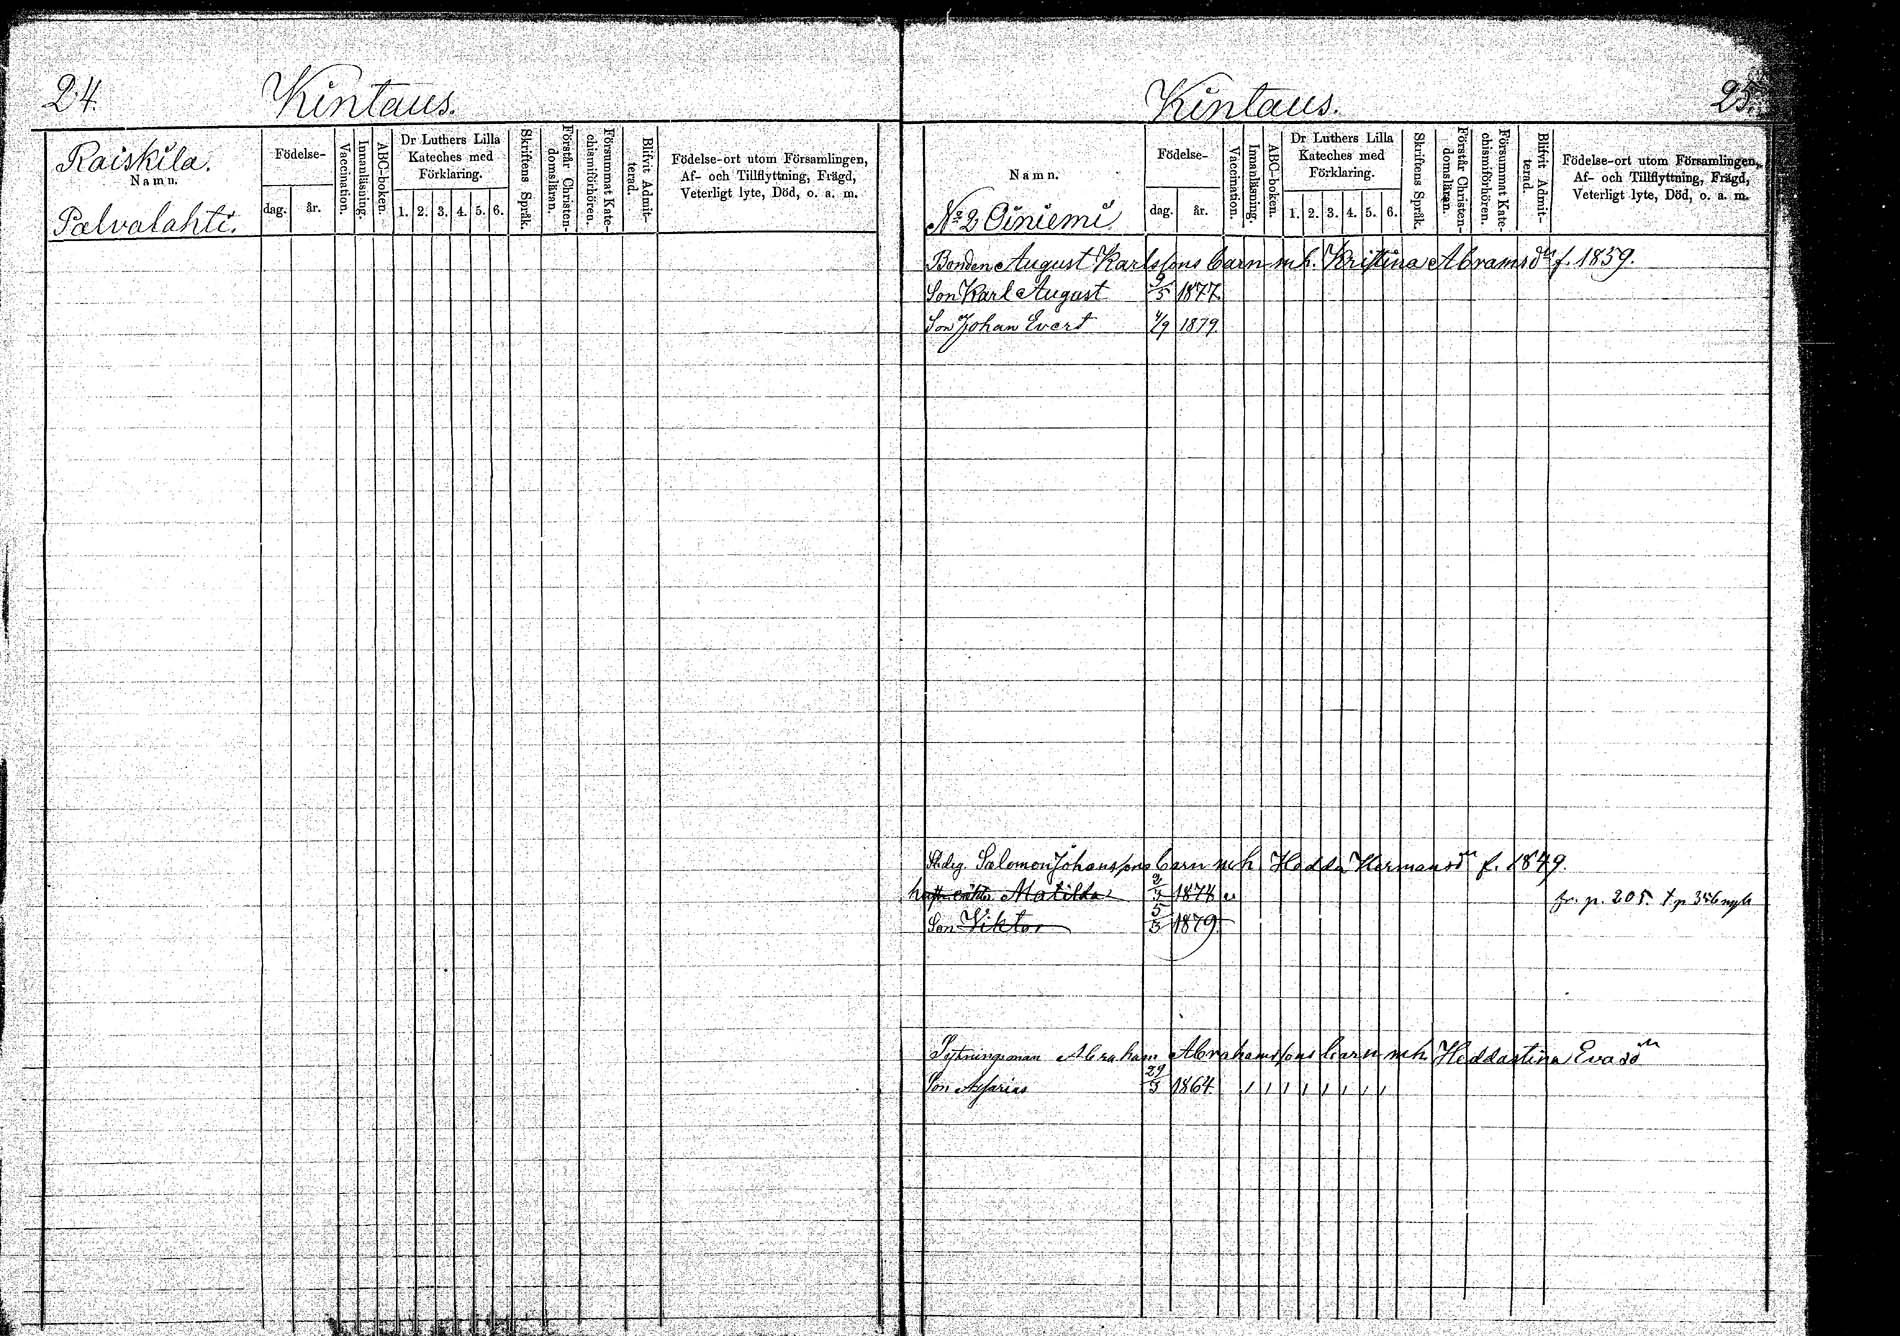 24. Kintaus.
Raiskila.
Namn.
Palvalahti.
Födelse-
dag. år.
Vaccination.
Innanläsning.
ABC-boken.
Dr Luthers Lilla
Kateches med
Förklaring.
1. 2. 3. 4. 5. 6.
Skriftens Språk.
Förstår Christen-
domsläran.
Försummat Kate-
chismiförhören.
Blifvit Admit-
terad.
Födelse-ort utom Församlingen,
Af- och Tillflyttning, Frägd,
Veterligt lyte, Död, o. a. m.
Kintaus. 25.
Namn.
No 2 Oiniemi
Födelse-
dag. år.
Vaccination.
Innanläsning.
ABC-boken.
Dr Luthers Lilla
Kateches med
Förklaring.
1. 2. 3. 4. 5. 6.
Skriftens Språk.
Förstår Christen-
domsläran.
Försummat Kate-
chismiförhören.
Blifvit Admit-
terad.
Födelse-ort utom Församlingen,
Af- och Tillflyttning, Frägd,
Veterligt lyte, Död, o. a. m.
Bonden August Karlssons barn mh. Kristina Abramsdr f. 1839.
Son Karl August 5/5 1877.
Son Johan Evert 4/9 1879.
Salomon Johanssons barn mh Hedda Hermansdr f. 1849.
Matilda 2/3 1878 fr. p. 205.
Son Viktor 5/3 1879.
Abraham Abrahamssons barn mh Heddastina Evasdr
Son Asarias 29/3 1864.